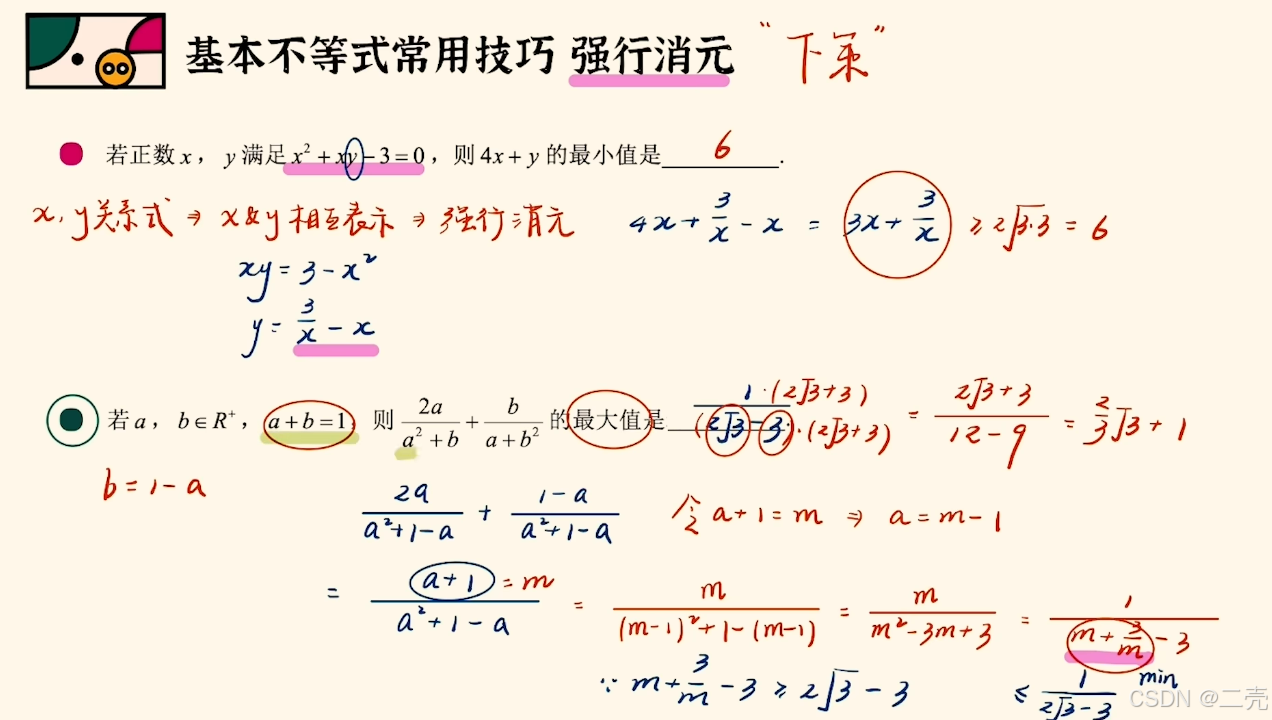 基本不等式常用技巧 强行消元 “下策”
若正数 x，y 满足 x² + xy − 3 = 0，则 4x + y 的最小值是 6 .
x, y关系式 ⇒ x & y 相互表示 ⇒ 强行消元
4x + 3/x − x = 3x + 3/x ≥ 2√3·3 = 6
xy = 3 − x²
y = 3/x − x
若 a，b ∈ R⁺，a + b = 1，则 2a/(a² + b) + b/(a + b²) 的最大值是
1·(2√3+3)/(2√3−3)·(2√3+3) = (2√3+3)/(12−9) = 2/3 √3 + 1
b = 1 − a
2a/(a²+1−a) + (1−a)/(a²+1−a)
令 a+1 = m ⇒ a = m−1
= (a+1)/(a²+1−a) = m
= m/((m−1)²+1−(m−1)) = m/(m²−3m+3) = 1/(m+3/m−3)
∵ m + 3/m − 3 ≥ 2√3 − 3
≤ 1/(2√3−3)
min
CSDN @二壳